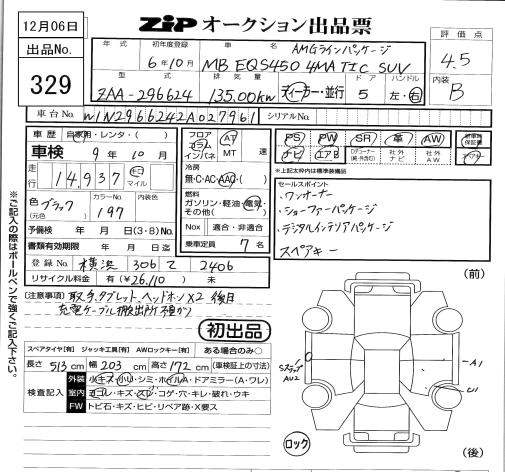 12月06日
出品No.
329
ZIP オークション出品票
年式 初年度登録 車名 AMGラインパッケージ
6年10月 MB EQS450 4MATIC SUV
型式 排気量 ドア ハンドル
ZAA-296624 135.00kw ディーラー・並行 5 左・右
評価点
4.5
内装
B
車台No. W1N2966242A027961 シリアルNo.
車歴 自家用・レンタ・( )
車検 9年10月
走行 14,937 キロ マイル
色 ブラック (元色) カラーNo. 197 内装色
予備検 年 月 日(3・8)No.
書類有効期限 年 月 日迄
登録No 横浜 306 て 2406
リサイクル料金 有(¥26,110) 未
フロア コラム インパネ AT MT 速
冷房 無・C・AC・AAC・( )
燃料 ガソリン・軽油・電気・その他( )
Nox 適合・非適合
乗車定員 7名
PS PW SR 革 AW 新車時保証書
ナビ エアB 社外ナビ 社外AW スペアキー
※上記太枠内は標準装備品
セールスポイント
・ワンオーナー
・ショーファーパッケージ
・デジタルインテリアパッケージ
スペアキー
(注意事項) 取手、タブレット、ヘッドホンX2 後日
充電ケーブル搬出所預かり
初出品
スペアタイヤ[有] ジャッキ工具[有] AWロックキー[有] ある場合のみ○
長さ 513cm 幅 203cm 高さ 172cm (車検証上の寸法)
検査記入
外装 小キズ・小リ・シミ・ホイルA・ドアミラー(A・ワレ)
室内 ヨゴレ・キズ・スレ・コゲ・穴・キレ・破れ・ウキ
FW トビ石・キズ・ヒビ・リペア跡・X要ス
※ご記入の際はボールペンで強くご記入下さい。
(前)
Sステップ
AU2
A1
U1
ロック
(後)